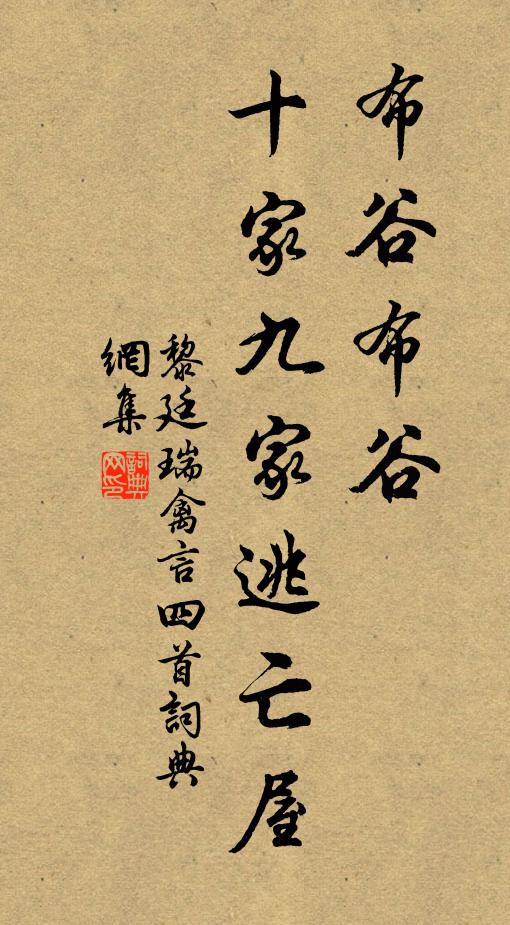 布谷布谷
十家九家逃亡屋
黎廷瑞禽言四首詞典
網集
詞典
网印